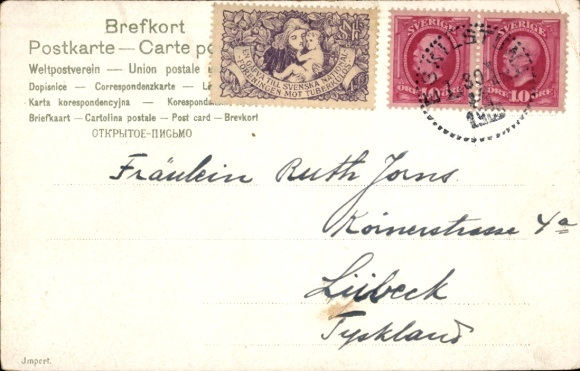 Brefkort
Postkarte — Carte po
Weltpostverein — Union postale
Dopisnice — Correspondenzkarte —
Karta korespondencyjna —
Briefkaart — Cartolina postale — Post card — Brevkort
ОТКРЫТОЕ-ПИСЬМО
TILL SVENSKA NATIONAL
FÖRENINGEN MOT TUBERKULOS
SVERIGE SVERIGE
10 ÖRE 10 ÖRE
Fräulein Ruth Jorns.
Körnerstrasse 4a
Lübeck
Tyskland
Import.